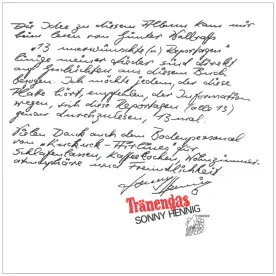 Die Idee zu diesem Album kam mir
beim lesen von Günter Wallraffs
"13 unerwünschte(n) Reportagen"
einige meiner Lieder sind direkt
auf Geschichten aus diesem Buch
bezogen. Ich möchte jedem, der diese
Platte hört, empfehlen, der Information
wegen, sich diese Reportagen (alle 13)
genau durchzulesen, 13 mal.
Vielen Dank auch dem Bodenpersonal
von "Kuckuck-Airlines" für
Schlafenlassen, Kaffeekochen, Wohnzimmer-
atmosphäre und Freundlichkeit
Sonny Hennig
Tränengas
SONNY HENNIG